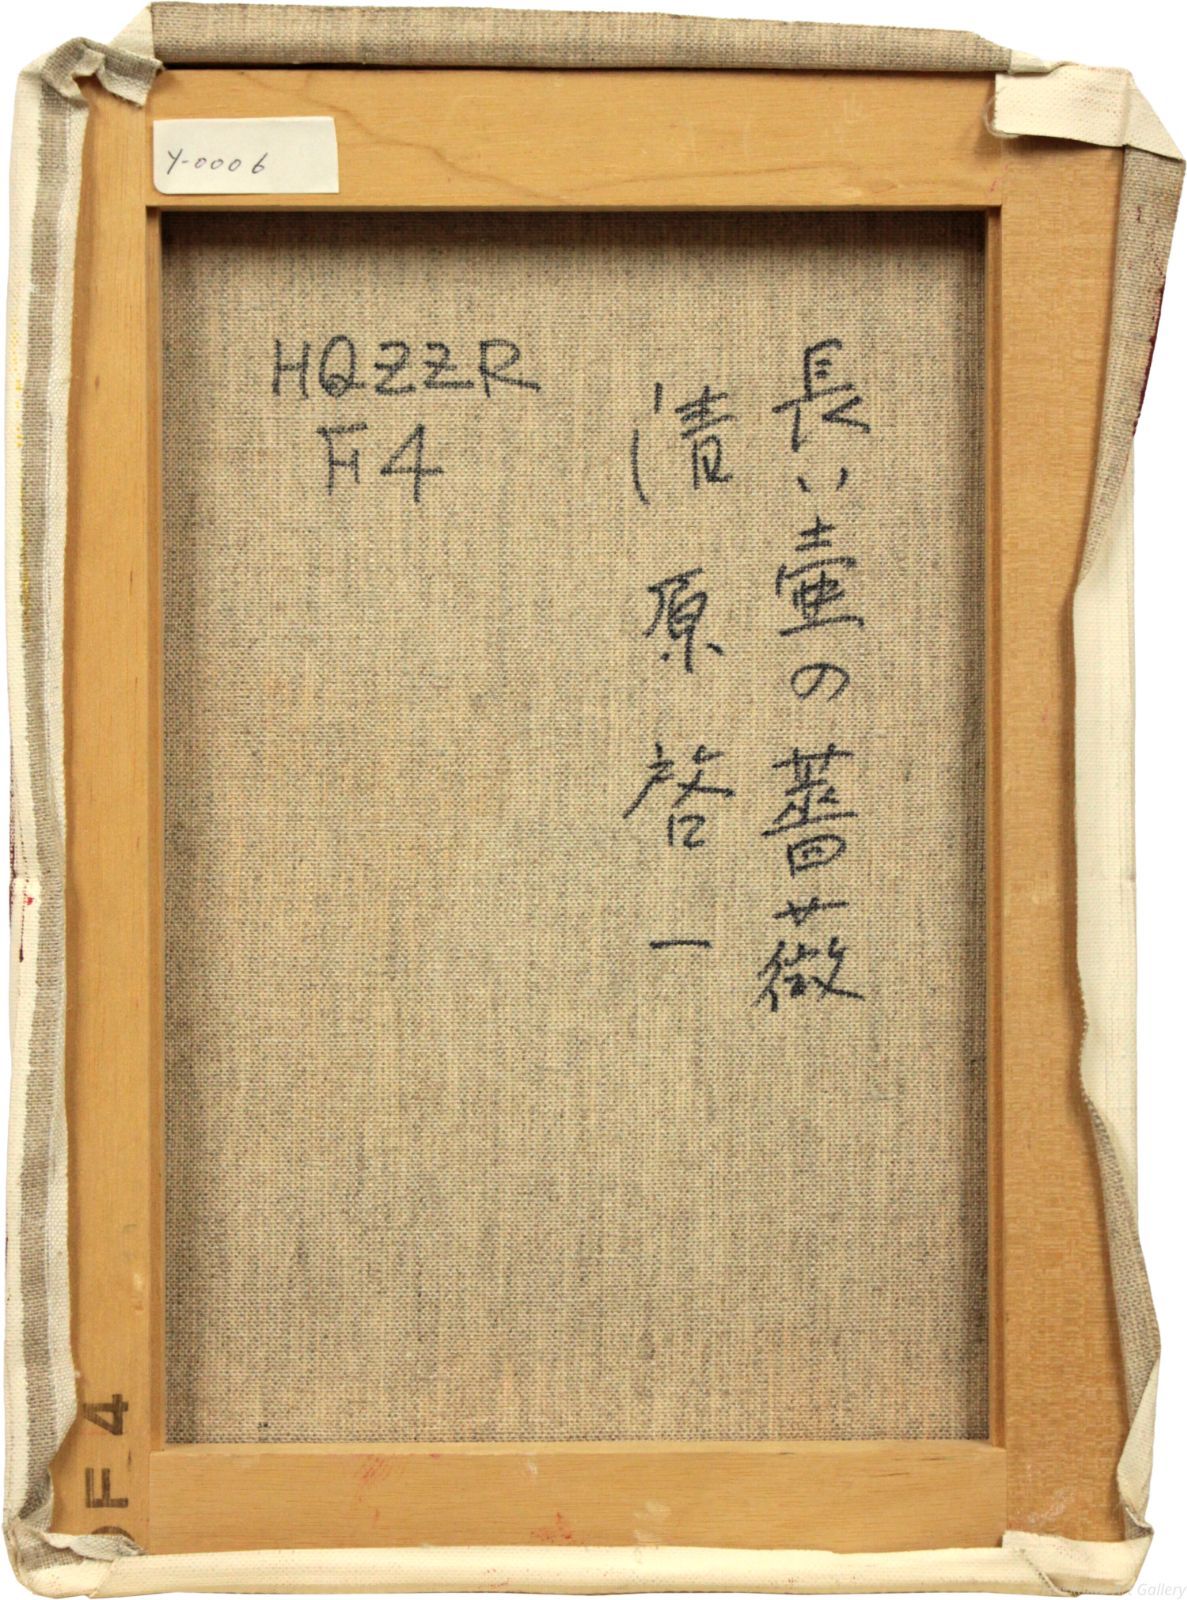 Y-0006
長い壷の薔薇
清原啓一
HQZZR
F4
F4
Gallery